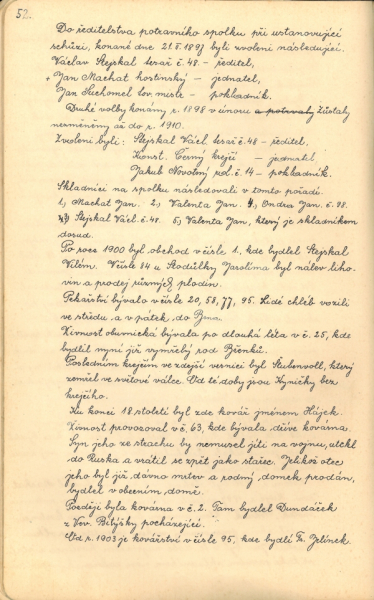 52.
Do ředitelstva potravního spolku při ustanovující
schůzi, konané dne 21. 1897 byli zvoleni následující:
Václav Stejskal tesař č. 48. - ředitel,
Jan Machat hostinský - jednatel,
Jan Suchomel tov. mistr - pokladník.
Druhé volby konány r. 1898 v únoru a potrvaly zůstaly
nezměněny až do r. 1910.
Zvoleni byli: Stejskal Václ. tesař č. 48 - ředitel,
Konst. Černý krejčí - jednatel
Jakub Novotný rol. č. 14 - pokladník.
Skladníci na spolku následovali v tomto pořadí:
1, Machat Jan. 2, Valenta Jan. 3, Ondra Jan č. 98.
4, Stejskal Václ. č. 48. 5, Valenta Jan, který je skladníkem
dosud.
Po roce 1900 byl obchod v čísle 1, kde bydlel Stejskal
Vilém. V čísle 84 u Jarolíma byl nálev liho-
vin a prodej různých plodin.
Pekařství bývalo v čísle 20, 58, 77, 95. Lidé chléb vozili
ve středu a v pátek do Brna.
Živnost obuvnická bývala po dlouhá léta v č. 25, kde
bydlil nyní již vymřelý rod
Posledním krejčím ve zdejší vesnici byl Stubenvoll, který
zemřel ve světové válce. Od té doby jsou Kyničky bez
krejčího.
Ku konci 18 století byl zde kovář jménem Hájek.
Živnost provozoval v č. 63, kde bývala dříve kovárna.
Syn jeho ze strachu by nemusel jíti na vojnu, utekl
do Ruska a vrátil se zpět jako stařec. Jelikož otec
jeho byl již dávno mrtev a rodný domek prodán,
bydlel v obecním domě.
Později byla kovárna v č. 2. Tam bydlel Dundáček
z Vev. Bitýšky pocházející.
Od r. 1903 je kovářství v čísle 95, kde bydlí Fr. Jelínek.